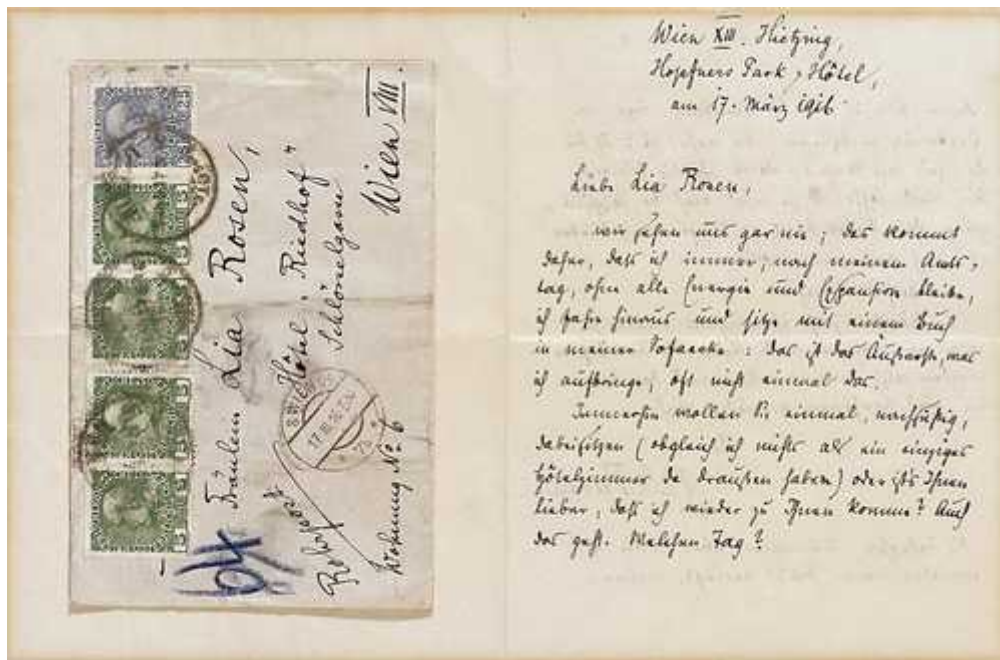 Fräulein Lia Rosen,
Hôtel „Riedhof"
Schlösselgasse
Wien VIII.
Rohrpost
Wohnung No. 6
17. III. 16
Wien XIII. Hietzing,
Hopfners Park-Hôtel,
am 17. März 1916
Liebe Lia Rosen,
wir sehen uns gar nie; das kommt
daher, daß ich immer, nach meinem Amts-
tag, ohne alle Energie und Expansion bleibe,
ich fahre hinaus und sitze mit einem Buch
in meiner Sofaecke: das ist das Äußerste, was
ich aufbringe, oft nicht einmal das.
Immerhin wollen Sie einmal, nachsichtig,
dabeisitzen (obgleich ich nichts als ein einziges
Hôtelzimmer da draußen habe) oder ists Ihnen
lieber, daß ich wieder zu Ihnen komme? Auch
das geht. Welchen Tag?